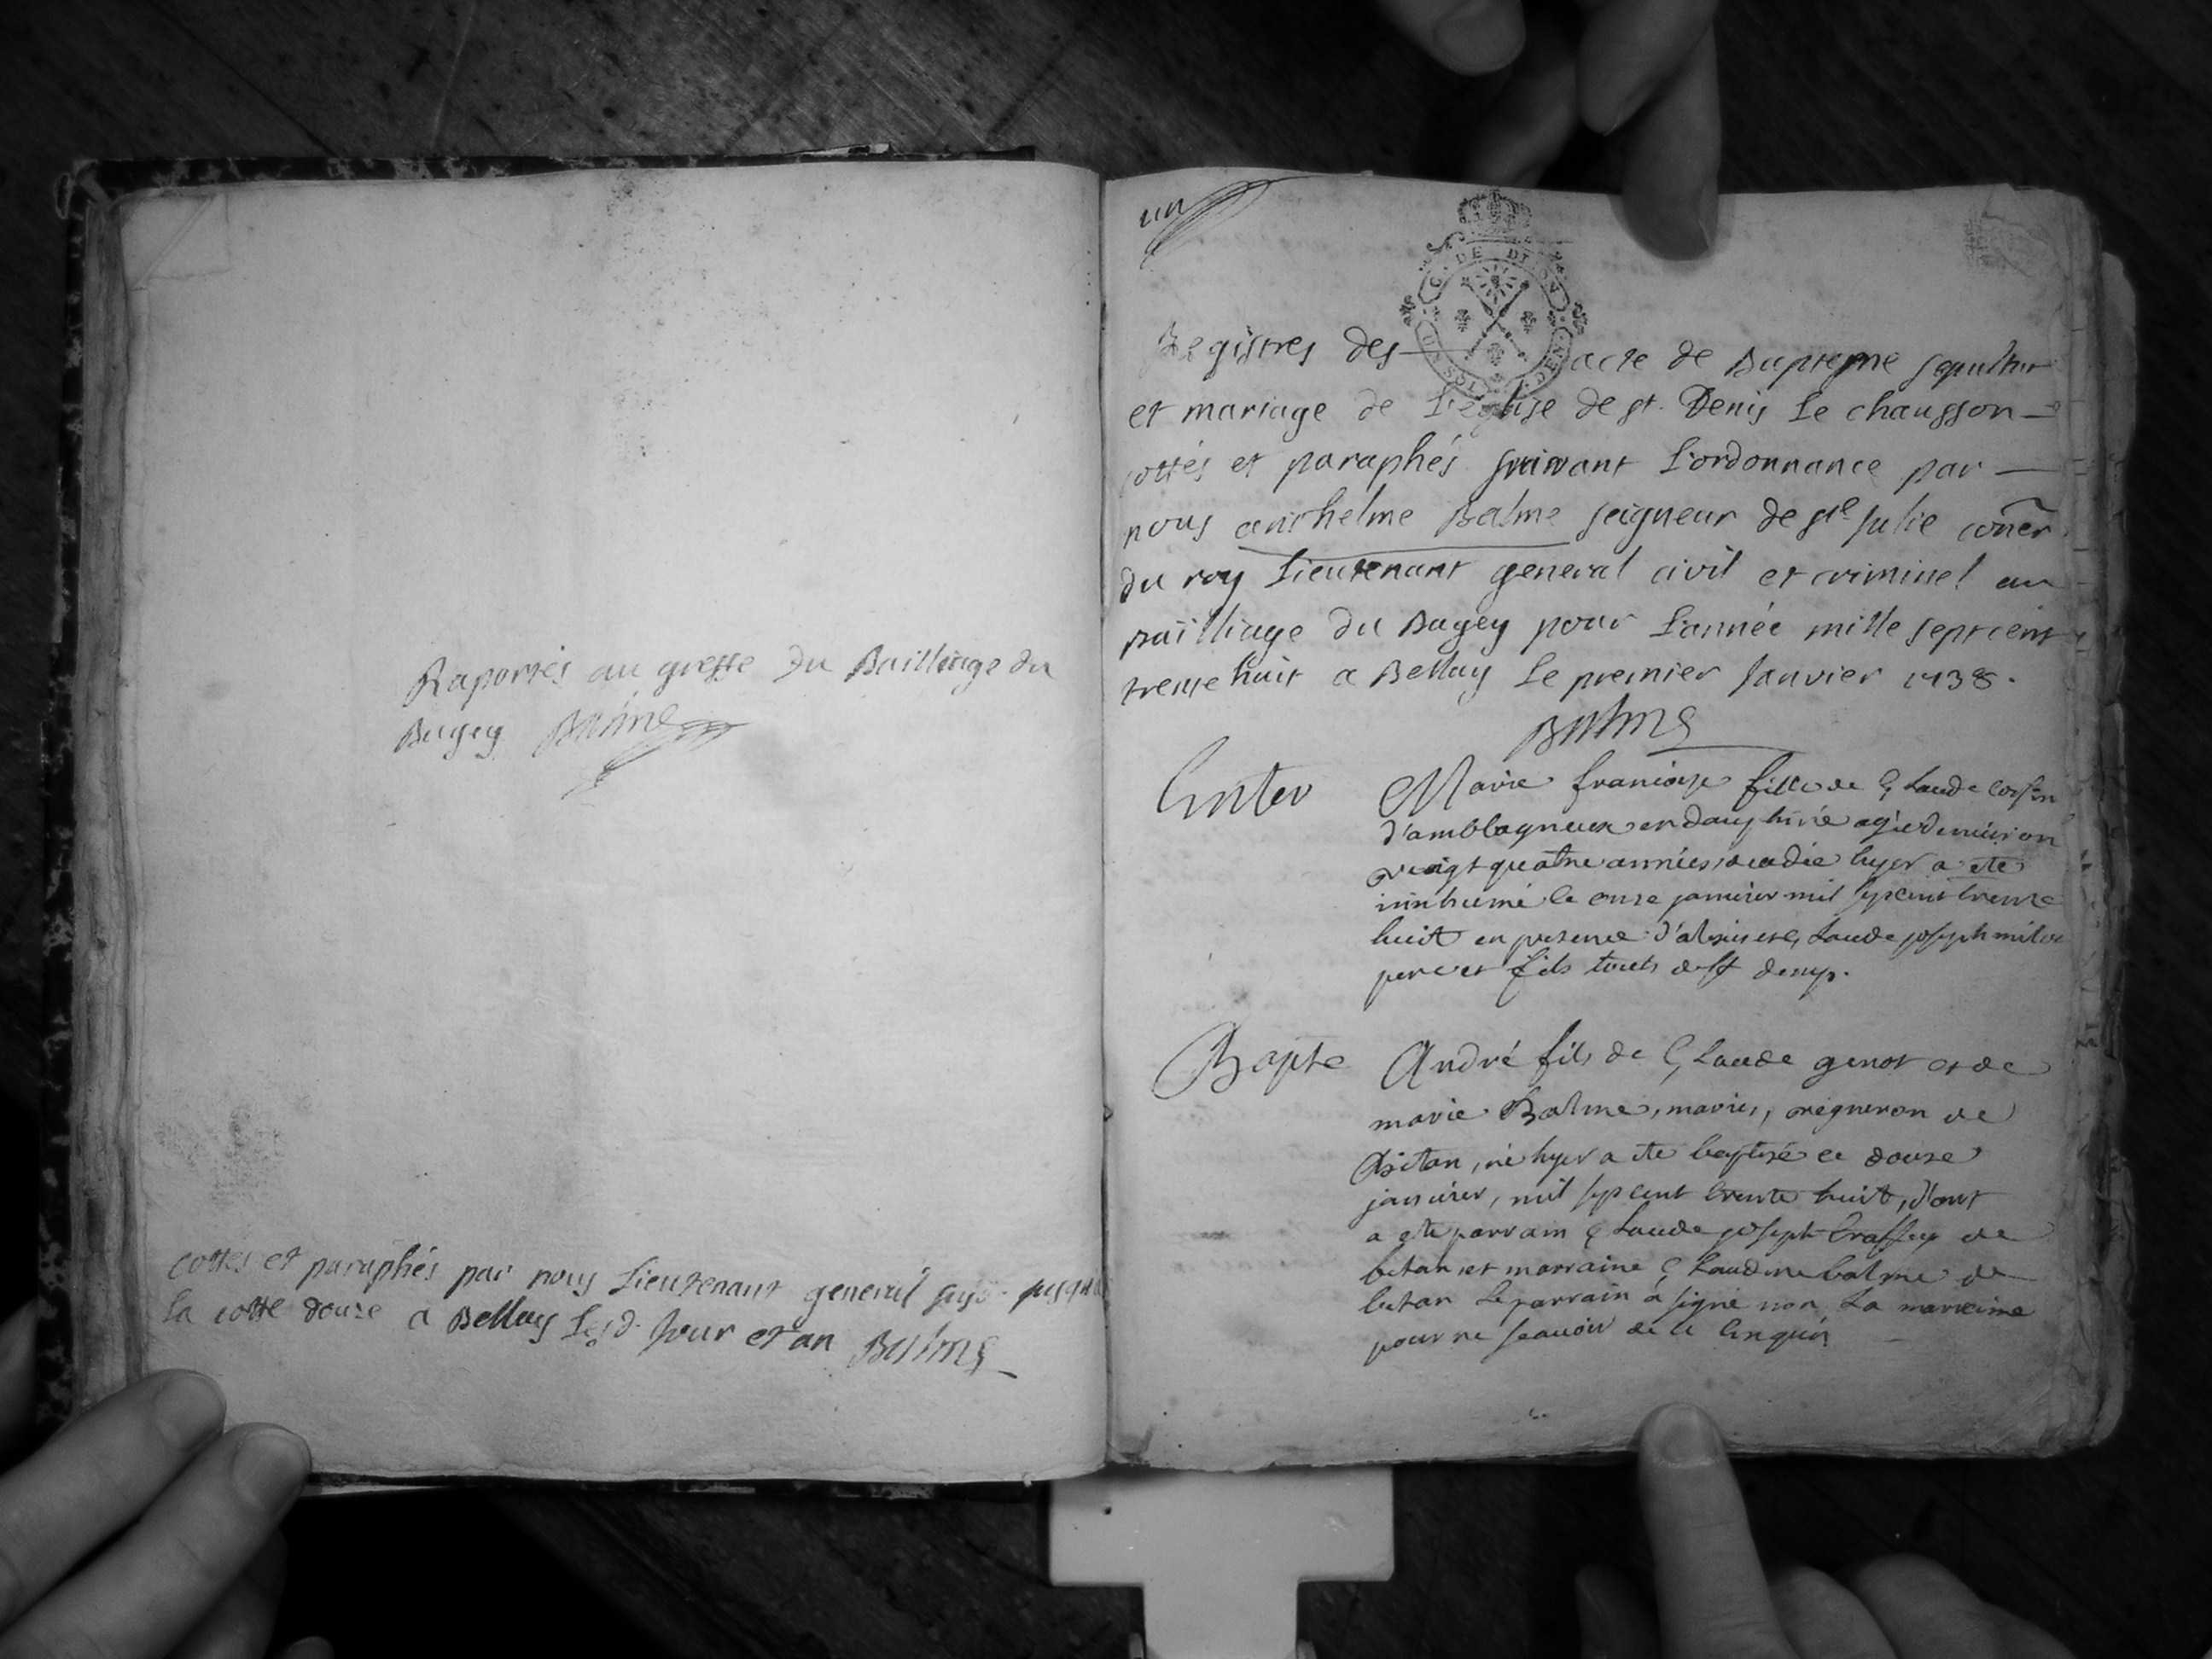 Raportés au greffe du Bailliage du
Bugey Balme
cottés et paraphés par nous Lieutenant general jusqua
la cotte douze a Belley Lesd. jour et an Balme
un
G. DE DIJON
Registres des acte de Bapteme sepultur
et mariage de L'eglise de st. Denis Le chausson
cottés et paraphés suivant L'ordonnance par
nous anthelme Balme seigneur de ste Julie coner
du roy Lieutenant general civil et criminel au
bailliage du Bugey pour L'année mille septcent
trente huit a Belley Le premier Janvier 1738.
Balme
Enter
Marie francoise fille de Claude
d'amblagnieux en dauphiné agée denviron
vingt quatre années, decedée hyer a ete
innhumé le onze janvier mil sepcent trente
huit en presence d' Claude joseph
pere et fils touts de st denys.
Bapte
André fils de Claude genot et de
marie Balme, mariés, vigneron de
Bitan, né hyer a ete baptisé ce douze
janvier, mil sepcent trente huit, d'ont
a ete parrain Claude joseph de
bitan et marraine Claudine balme de
bitan Le parrain a signé non La marraine
pour ne scauoir de ce enquis